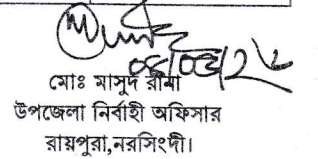 মোঃ মাসুদ রানা
উপজেলা নির্বাহী অফিসার
রায়পুরা,নরসিংদী।